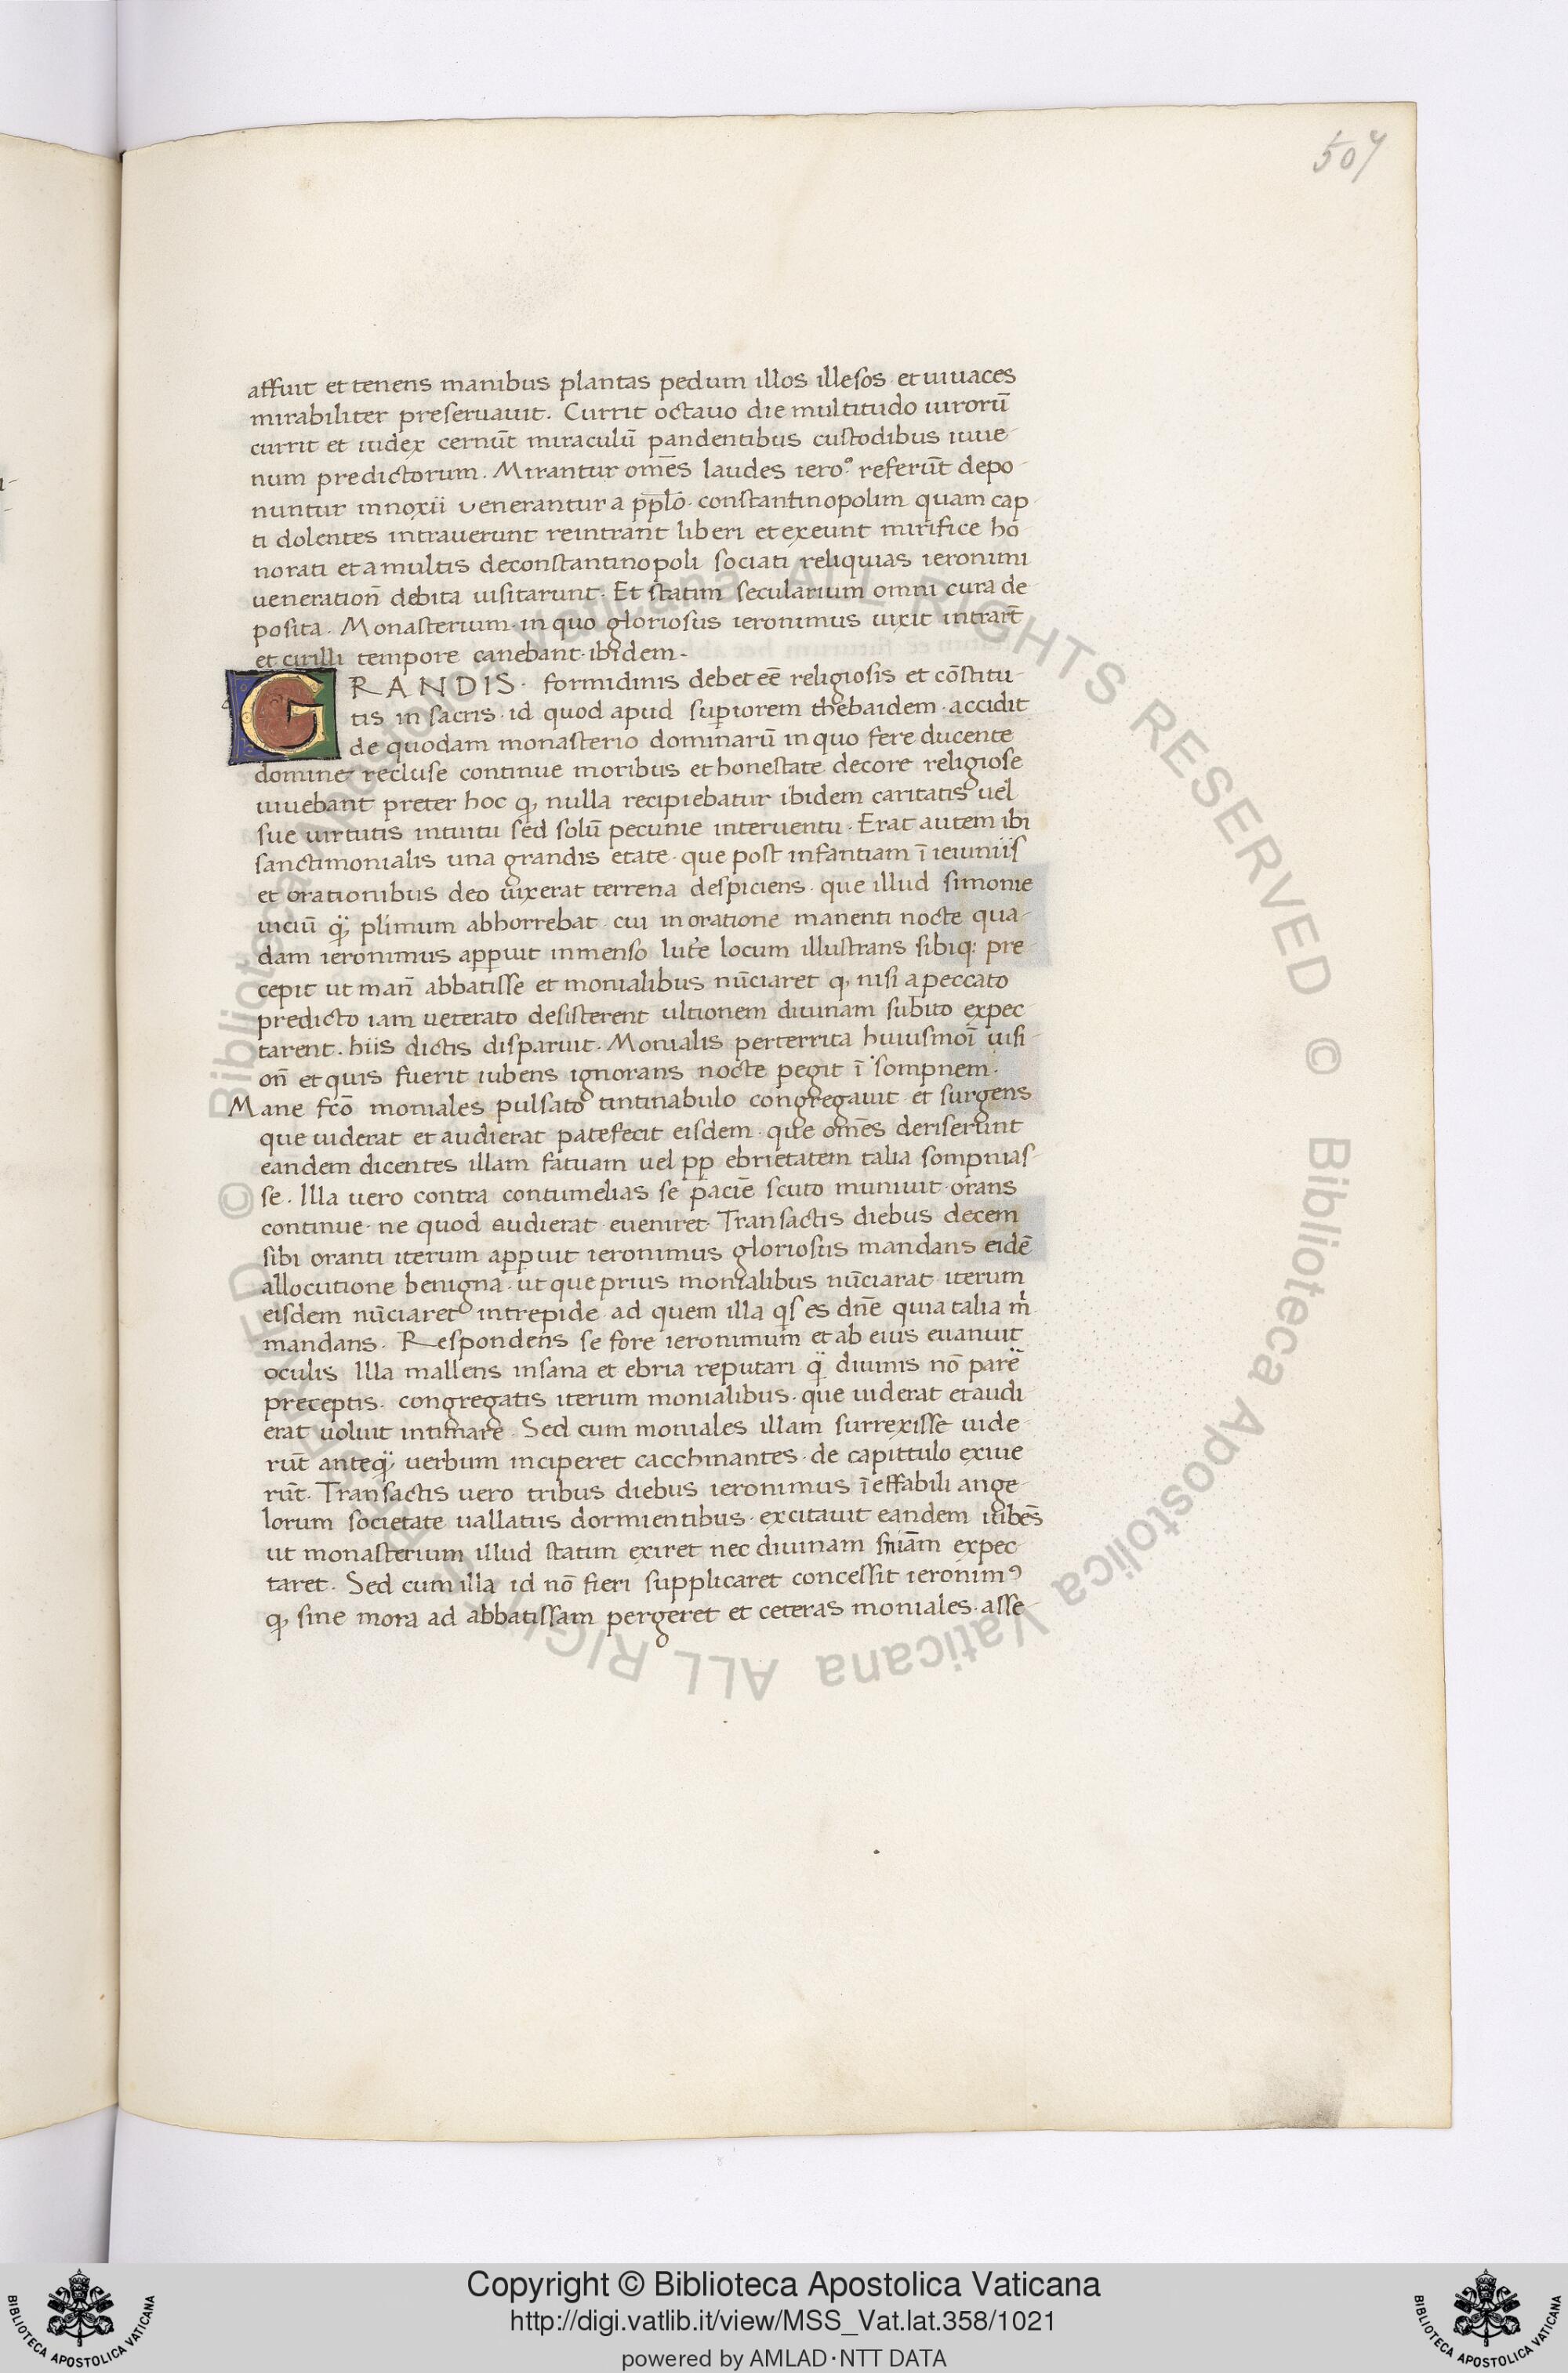 507
affuit et tenens manibus plantas pedum illos illesos et uiuaces
mirabiliter preseruauit. Currit octauo die multitudo uirorū
currit et iudex cernūt miraculū pandentibus custodibus iuue-
num predictorum. Mirantur om̄es laudes iero.º referūt depo-
nuntur innoxii uenerantur a pp̄lō. constantinopolim quam cap
ti dolentes intrauerunt reintrant liberi et exeunt mirifice ho
norati et a multis deconstantinopoli sociati reliquias ieronimi
ueneration̄ debita uisitarunt. Et statim secularium omni cura de-
posita. Monasterium in quo gloriosus ieronimus uixit intrarūt
et cirilli tempore canebant ibidem.
GRANDIS. formidinis debet eē religiosis et cōstitu-
tis in sacris. id quod apud sup̱iorem thebaidem. accidit
de quodam monasterio dominarū in quo fere ducente
domine recluse continue moribus et honestate decore religiose
uiuebant preter hoc q, nulla recipiebatur ibidem caritatis uel
sue uirtutis intuitu sed solū pecunie interuentu. Erat autem ibi
sanctimonialis una grandis etate. que post infantiam ī ieiuniis
et orationibus deo uixerat terrena despiciens. que illud simonie
uiciū q̈, plīmum abhorrebat cui in oratione manenti nocte qua-
dam ieronimus app̱uit inmenso lūe locum illustrans sibiq: pre-
cepit ut man̄ abbatisse et monialibus nūciaret q, nisi a peccato
predicto iam ueterato desisterent ultionem diuinam subito expec
tarent. hiis dictis disparuit. Monialis perterrita huiusmoī uisi-
on̄ et quis fuerit iubens ignorans nocte pegit ī sompnem.
Mane fcō moniales pulsato tintinabulo congregauit et surgens
que uiderat et audierat patefecit eisdem. que om̄es deriserunt
eandem dicentes illam fatuam uel pp̱ ebrietatem talia sompnias-
se. Illa uero contra contumelias se pacie scuto muniuit. orans
continue. ne quod audierat eueniret. Transactis diebus decem
sibi oranti iterum app̱uit ieronimus gloriosus mandans eidē
allocutione benigna. ut que prius monialibus nūciarat iterum
eisdem nūciaret intrepide. ad quem illa qs es dn̄e quia talia m̍
mandans. Respondens se fore ieronimum et ab eius euanuit
oculis Illa mallens insana et ebria reputari q̈ diuinis nō parē
preceptis. congregatis iterum monialibus. que uiderat et audi
erat uoluit intimare. Sed cum moniales illam surrexisse uide-
rūt anteq̈, uerbum inciperet cacchinantes. de capittulo exiue
rūt. Transactis uero tribus diebus ieronimus īeffabili ange-
lorum societate uallatus dormientibus. excitauit eandem iubēs
ut monasterium illud statim exiret nec diuinam sn̄iam expec-
taret. Sed cum illa id nō fieri supplicaret concessit ieronimꝰ
q, sine mora ad abbatissam pergeret et ceteras moniales. asse-
© Biblioteca Apostolica Vaticana ALL RIGHTS RESERVED © Biblioteca Apostolica Vaticana ALL RIGHTS RESERVED
Copyright © Biblioteca Apostolica Vaticana
http://digi.vatlib.it/view/MSS_Vat.lat.358/1021
powered by AMLAD·NTT DATA
BIBLIOTECA APOSTOLICA VATICANA
BIBLIOTECA APOSTOLICA VATICANA